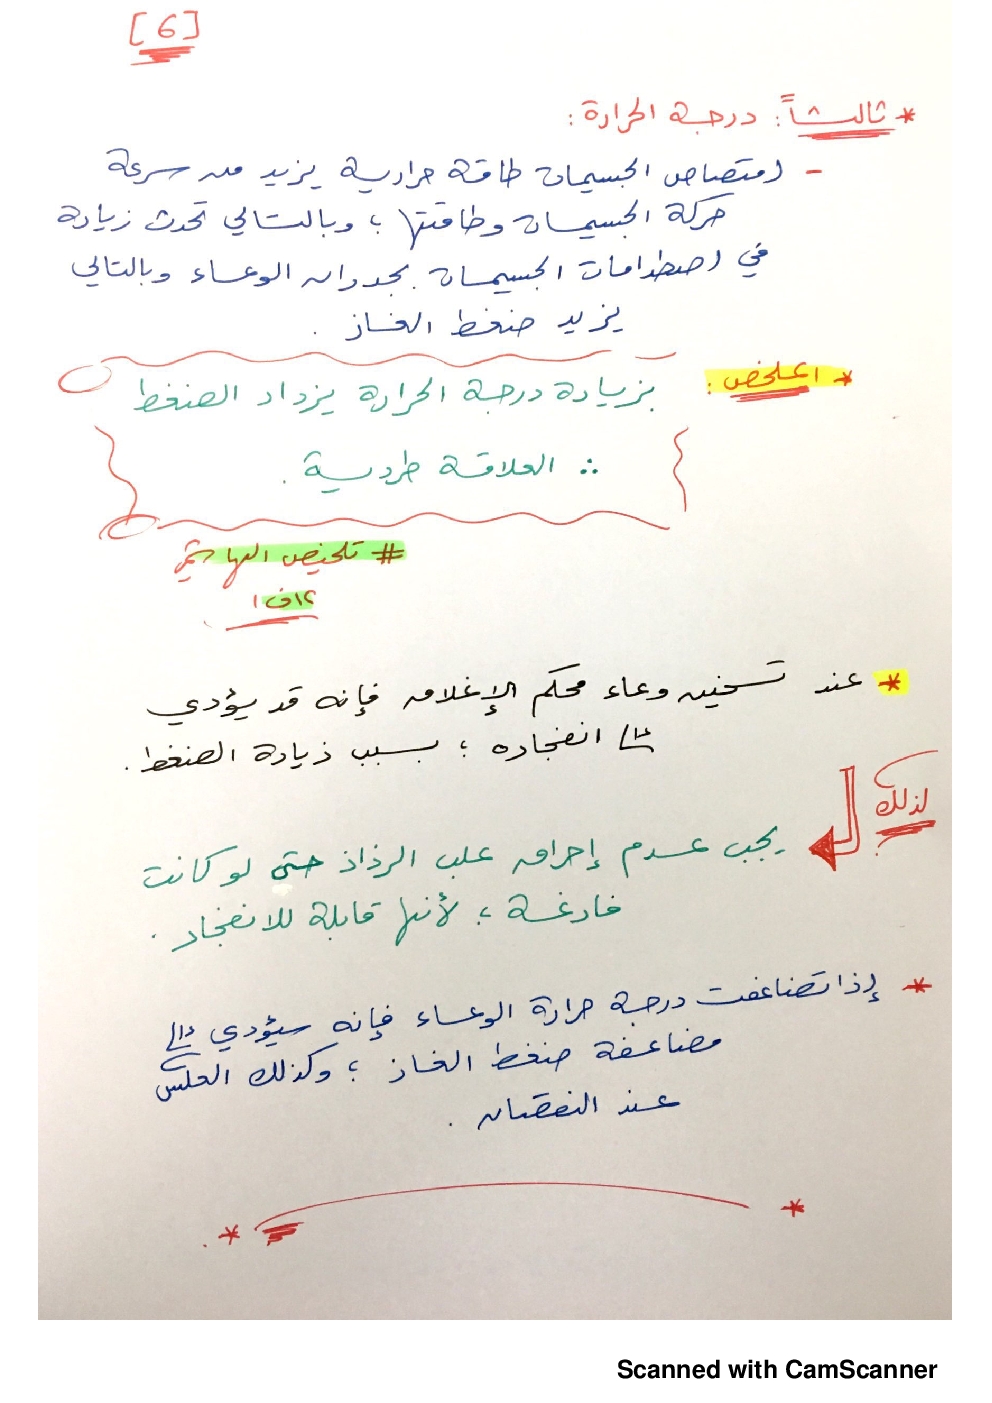 [6]
* ثالثاً: درجة الحرارة:
- امتصاص الجسيمات طاقة حرارية يزيد من سرعة
حركة الجسيمات وطاقتها ؛ وبالتالي تحدث زيادة
في اصطدامات الجسيمات بجدران الوعاء وبالتالي
يزيد ضغط الغاز .
* الملخص :
بزيادة درجة الحرارة يزداد الضغط
∴ العلاقة طردية .
# تلخيص
١٢ف١
* عند تسخين وعاء محكم الإغلاق فإنه قد يؤدي
إلى انفجاره ؛ بسبب زيادة الضغط .
لذلك
يجب عدم إحراق علب الرذاذ حتى لو كانت
فارغة ؛ لأنها قابلة للانفجار .
* إذا تضاعفت درجة حرارة الوعاء فإنه سيؤدي إلى
مضاعفة ضغط الغاز ؛ وكذلك العكس
عند النقصان .
Scanned with CamScanner